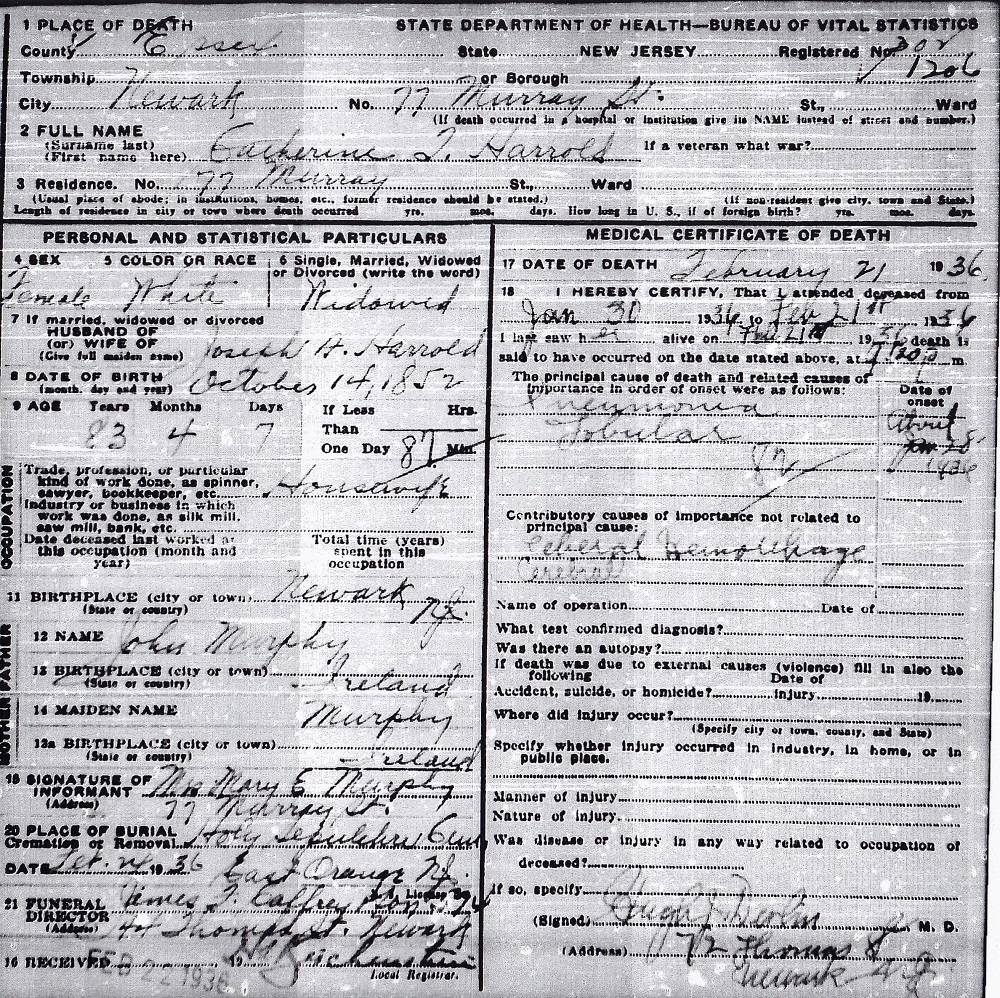 1 PLACE OF DEATH STATE DEPARTMENT OF HEALTH—BUREAU OF VITAL STATISTICS
County Essex State NEW JERSEY Registered No.
1206
Township or Borough
City Newark No. 77 Murray St. St., Ward
(If death occurred in a hospital or institution give its NAME instead of street and number.)
2 FULL NAME
(Surname last)
(First name here) Catherine T. Harrold If a veteran what war?
3 Residence. No. 77 Murray St., Ward
(Usual place of abode; in institutions, homes, etc., former residence should be stated.) (If non-resident give city, town and State.)
Length of residence in city or town where death occurred yrs. mos. days. How long in U. S., if of foreign birth? yrs. mos. days.
PERSONAL AND STATISTICAL PARTICULARS
4 SEX 5 COLOR OR RACE 6 Single, Married, Widowed
or Divorced (write the word)
Female White Widowed
7 If married, widowed or divorced
HUSBAND OF
(or) WIFE OF
(Give full maiden name) Joseph H. Harrold
8 DATE OF BIRTH October 14, 1852
(month, day and year)
9 AGE Years Months Days If Less Hrs.
Than
83 4 7 One Day 87 Min.
OCCUPATION
Trade, profession, or particular
kind of work done, as spinner,
sawyer, bookkeeper, etc. Housewife
Industry or business in which
work was done, as silk mill,
saw mill, bank, etc.
Date deceased last worked at Total time (years)
this occupation (month and spent in this
year) occupation
11 BIRTHPLACE (city or town) Newark
(State or country) N.J.
FATHER
12 NAME John Murphy
13 BIRTHPLACE (city or town)
(State or country) Ireland
MOTHER
14 MAIDEN NAME Murphy
13a BIRTHPLACE (city or town)
(State or country) Ireland
15 SIGNATURE OF
INFORMANT Mrs Mary E Murphy
(Address) 77 Murray St.
20 PLACE OF BURIAL
Cremation or Removal Holy Sepulchre Cem
DATE Feb. 24 1936 East Orange N.J.
21 FUNERAL
DIRECTOR James F. Caffrey Son
(Address) 44 Thomas St. Newark
16 RECEIVED FEB 2 1936 19
Local Registrar.
MEDICAL CERTIFICATE OF DEATH
17 DATE OF DEATH February 21 1936
18 I HEREBY CERTIFY, That I attended deceased from
Jan 30 1936 to Feb 21st 1936
I last saw her alive on Feb 21st 1936 death is
said to have occurred on the date stated above, at m.
The principal cause of death and related causes of
importance in order of onset were as follows: Date of
onset
Pneumonia About
Lobular
1936
Contributory causes of importance not related to
principal cause:
Cerebral Hemorrhage
Cerebral
Name of operation Date of
What test confirmed diagnosis?
Was there an autopsy?
If death was due to external causes (violence) fill in also the
following Date of
Accident, suicide, or homicide? injury 19
Where did injury occur?
(Specify city or town, county, and State)
Specify whether injury occurred in industry, in home, or in
public place.
Manner of injury
Nature of injury
Was disease or injury in any way related to occupation of
deceased?
If so, specify
(Signed) Hugh F. Devlin M. D.
(Address) 72 Thomas St
Newark N J